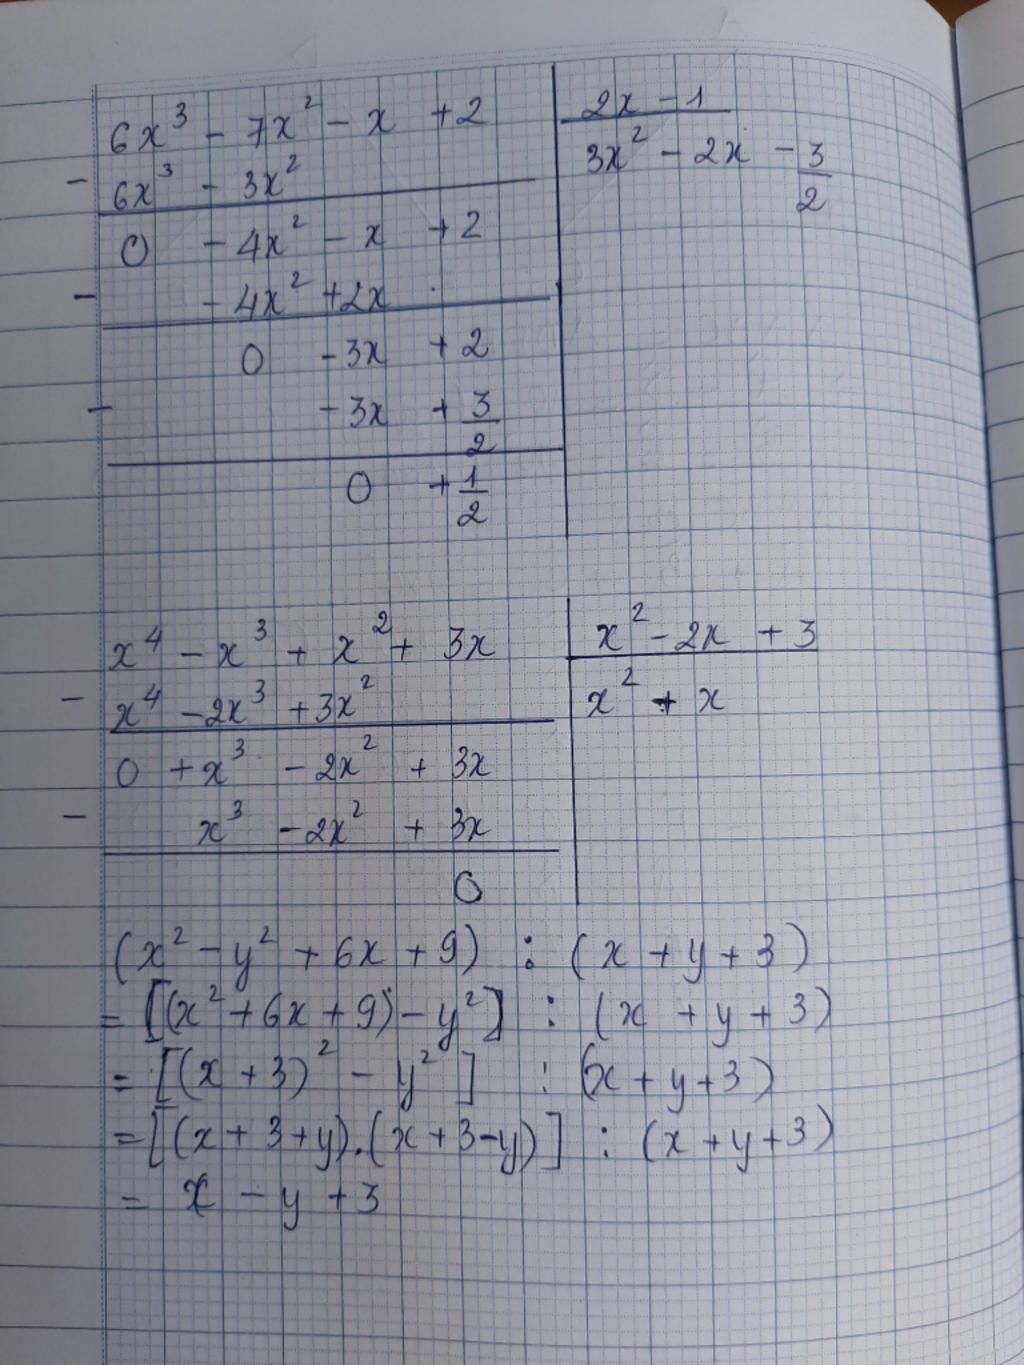 6x³ - 7x² - x + 2 | 2x - 1
- 6x³ - 3x² | 3x² - 2x - 3/2
0 - 4x² - x + 2
- - 4x² + 2x
0 - 3x + 2
- - 3x + 3/2
0 + 1/2
x⁴ - x³ + x² + 3x | x² - 2x + 3
- x⁴ - 2x³ + 3x² | x² + x
0 + x³ - 2x² + 3x
- x³ - 2x² + 3x
0
(x² - y² + 6x + 9) : (x + y + 3)
= [(x² + 6x + 9) - y²] : (x + y + 3)
= [(x + 3)² - y²] : (x + y + 3)
= [(x + 3 + y).(x + 3 - y)] : (x + y + 3)
= x - y + 3